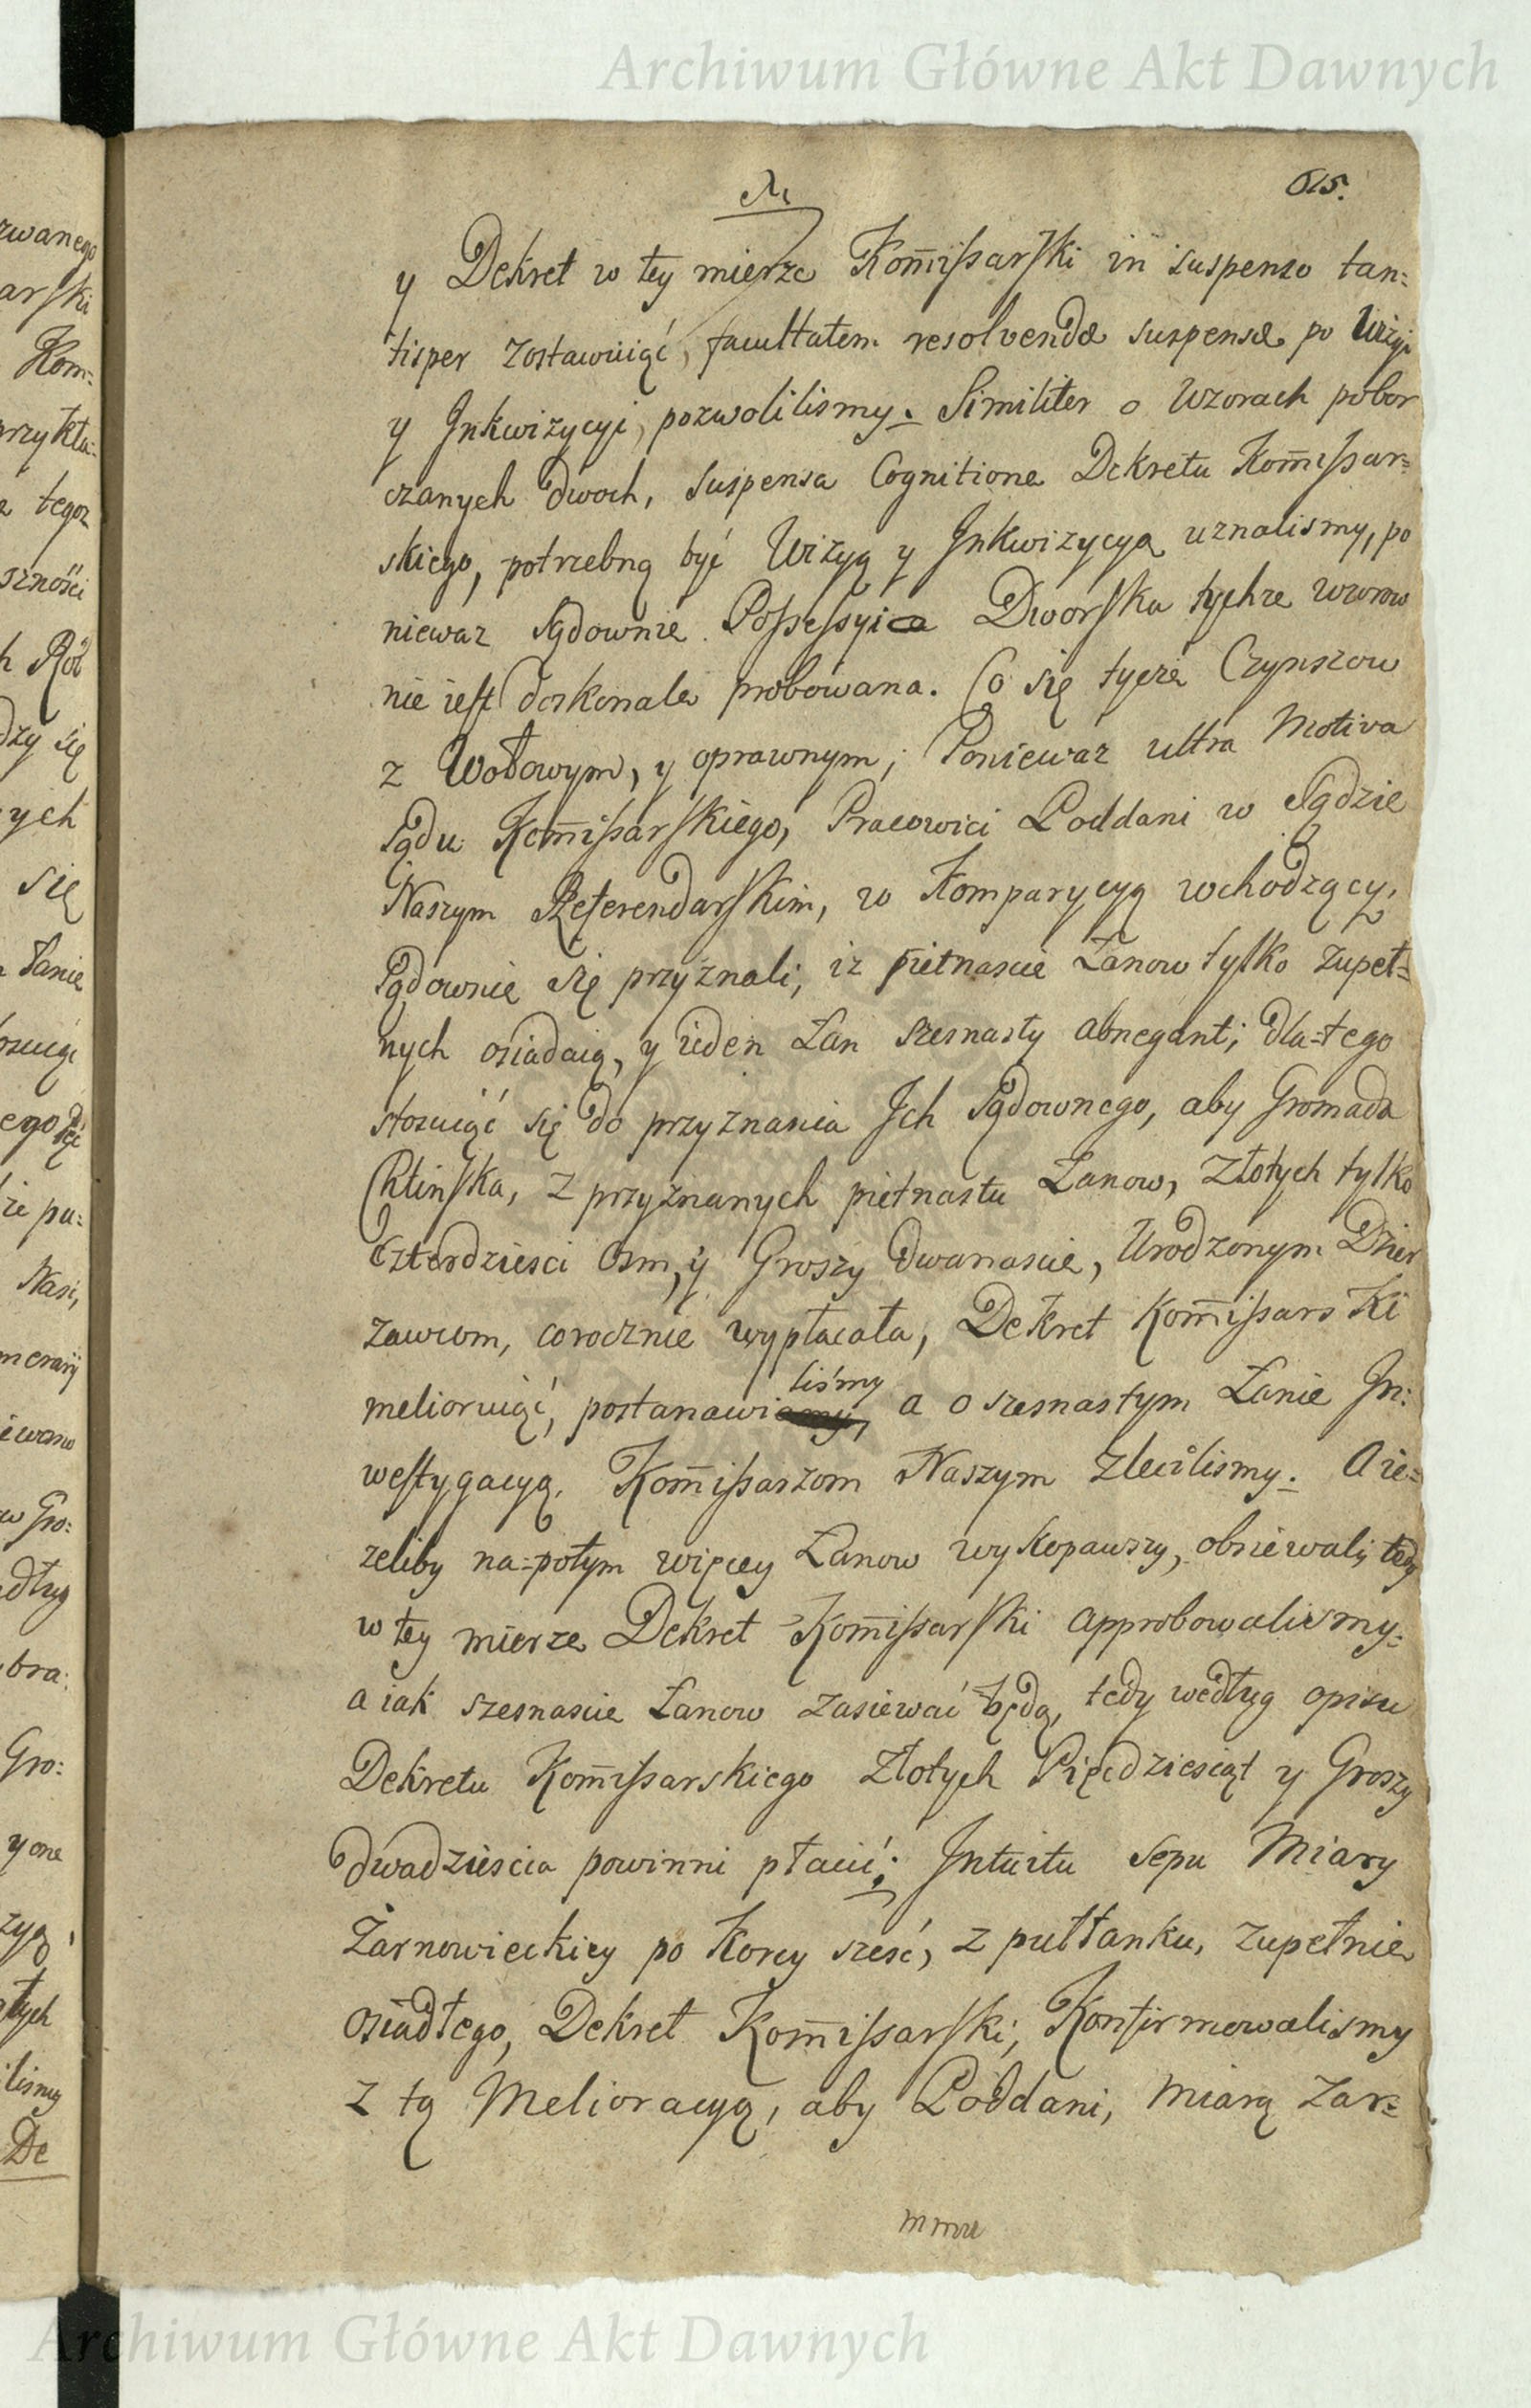 Archiwum Główne Akt Dawnych
615.
y Dekret w tey mierze Kom̄issarski in suspenso tan=
tisper zostawuiąć, facultatem resolvendæ suspensæ po Wizyi
y Inkwizycyi, pozwolilismy. Similiter o Wzorach pobor
czanych dwoch, suspensa Cognitione Dekretu Kom̄issar=
skiego, potrzebną być Wizyą y Inkwizycyą uznalismy, po
niewaz Sądownie Possessyia Dworska tychze wzorow
nie iest doskonale probowana. Co się tycze Czynszow
z Wołowym, y oprawnym; Poniewaz ultra Motiva
Sądu Kom̄issarskiego, Pracowici Poddani w Sądzie
Naszym Referendarskim, w Komparycyą wchodzący,
Sądownie się przyznali, iz pietnascie Łanow tylko zupeł=
nych osiadaią, y ieden Łan szesnasty abnegant; dla=tego
stosuiąć się do przyznania Ich Sądownego, aby Gromada
Chlinska, z przyznanych pietnastu Łanow, Złotych tylko
czterdziesci osm, y Groszy dwanascie, Urodzonym Dzier
zawcom, corocznie wypłacała, Dekret Kom̄issarski
melioruiąć, postanawiliśmy, a o szesnastym Łanie In:
westygacyą, Kom̄issarzom Naszym zlecilismy. A ie=
zeliby na=potym więcey Łanow wykopawszy, obsiewali, tedy
w tey mierze Dekret Kom̄issarski approbowalismy:
a iak szesnascie Łanow zasiewać będą, tedy według opisu
Dekretu Kom̄issarskiego Złotych Pięćdziesiąt y Groszy
dwadziescia powinni płacić; Intuitu Sepu Miary
Żarnowieckiey po Korcy sześć, z pułłanku, zupełnie
osiadłego, Dekret Kom̄issarski, Konfirmowalismy
z tą Melioracyą, aby Poddani, miarą Zar=
Archiwum Główne Akt Dawnych